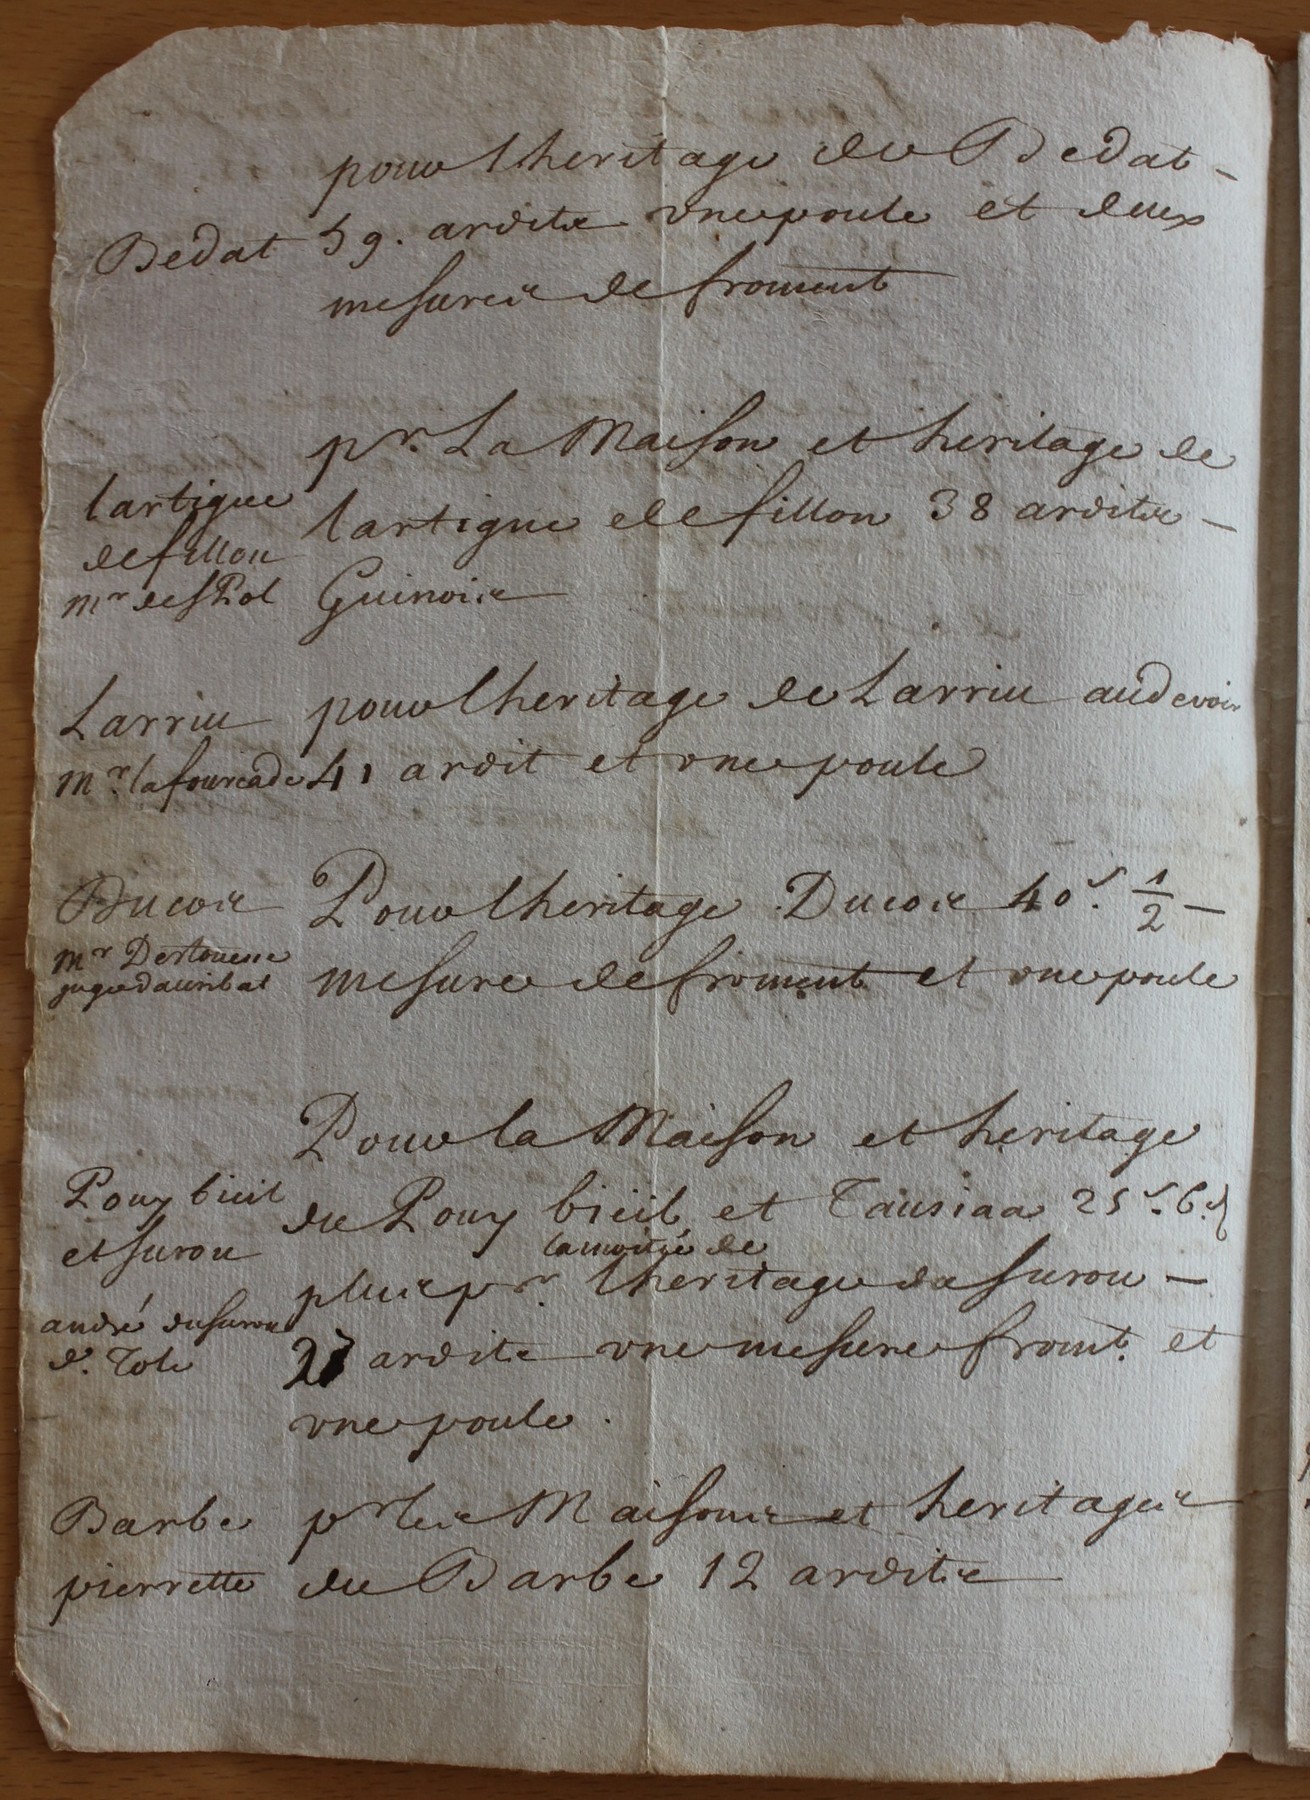 pour lheritage de Bedat -
Bedat 59. ardits une poule et deux
mesures de froment
pr. La Maison et heritage de
lartigue de fillon 38 ardits -
Guinois
lartigue
de fillon
Mr de st Pol
Larriu pour lheritage de Larriu au devoir
Mr. lafourcade 41 ardit et une poule
Ducos Pour lheritage Ducos 40 s. 1/2 -
mesure de froment et une poule
Mr Destouesse
juge dauribat
Pour la Maison et heritage
de Pouy bieil et Tausiaa 25 s. 6 d
Pouy bieil
et surou
la moitié de
plus pr. lheritage de surou -
27 ardits une mesure fromt. et
une poule.
andré dusurou
d. Tole
Barbe pr les Maisons et heritages
pierrette de Barbe 12 ardits